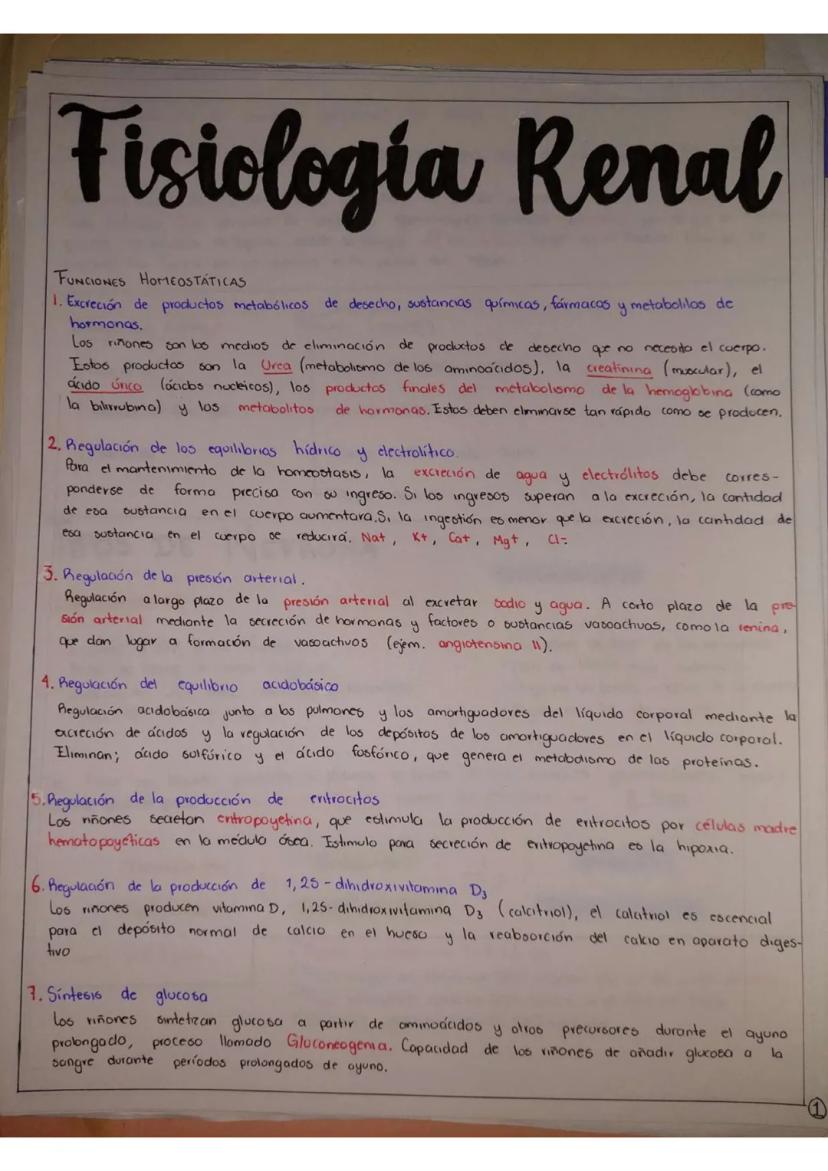 Fisiología Renal
FUNCIONES HOMEOSTÁTICAS
1. Excreción de productos metabólicos de desecho, sustancias químicas, fármacos y metabolilos de
hormonas.
Los riñones son los medios de eliminación de productos de desecho que no necesita el cuerpo.
Estos productos son la Urea (metabolismo de los aminoácidos), la creatinina (muscular), el
ácido úrico (ácidos nucleicos), los productos finales del metabolismo de la hemoglobina (como
la bilirrubina) y los metabolitos de hormonas. Estos deben eliminarse tan rápido como se producen.
2. Regulación de los equilibrios hídrico y electrolítico.
Para el mantenimiento de la homeostasis, la excreción de agua y electrólitos debe corres-
ponderse de forma precisa con su ingreso. Si los ingresos superan a la excreción, la cantidad
de esa sustancia en el cuerpo aumentara. Si la ingestión es menor que la excreción, la cantidad de
esa sustancia en el cuerpo se reducirá. Na+, K+, Ca+, Mg+, Cl-
3. Regulación de la presión arterial.
Regulación a largo plazo de la presión arterial al excretar sodio y agua. A corto plazo de la pre-
sión arterial mediante la secreción de hormonas y factores o sustancias vasoactivas, como la renina,
que dan lugar a formación de vasoactivos (ejem. angiotensina II).
4. Regulación del equilibrio acidobásico
Regulación acidobásica junto a los pulmones y los amortiguadores del líquido corporal mediante la
excreción de ácidos y la regulación de los depósitos de los amortiguadores en el líquido corporal.
Eliminan; ácido sulfúrico y el ácido fosfórico, que genera el metabolismo de las proteínas.
5. Regulación de la producción de eritrocitos
Los riñones secretan eritropoyetina, que estimula la producción de eritrocitos por células madre
hematopoyéticas en la médula ósea. Estimulo para secreción de eritropoyetina es la hipoxia.
6. Regulación de la producción de 1,25-dihidroxivitamina D3
Los riñones producen vitamina D, 1,25-dihidroxivitamina D3 (calcitriol), el calcitriol es escencial
para el depósito normal de calcio en el hueso y la reabsorción del calcio en aparato diges-
tivo
7. Síntesis de glucosa
Los riñones sintetizan glucosa a partir de aminoácidos y otros precursores durante el ayuno
prolongado, proceso llamado Gluconeogenia. Capacidad de los riñones de añadir glucosa a la
sangre durante períodos prolongados de ayuno.
1